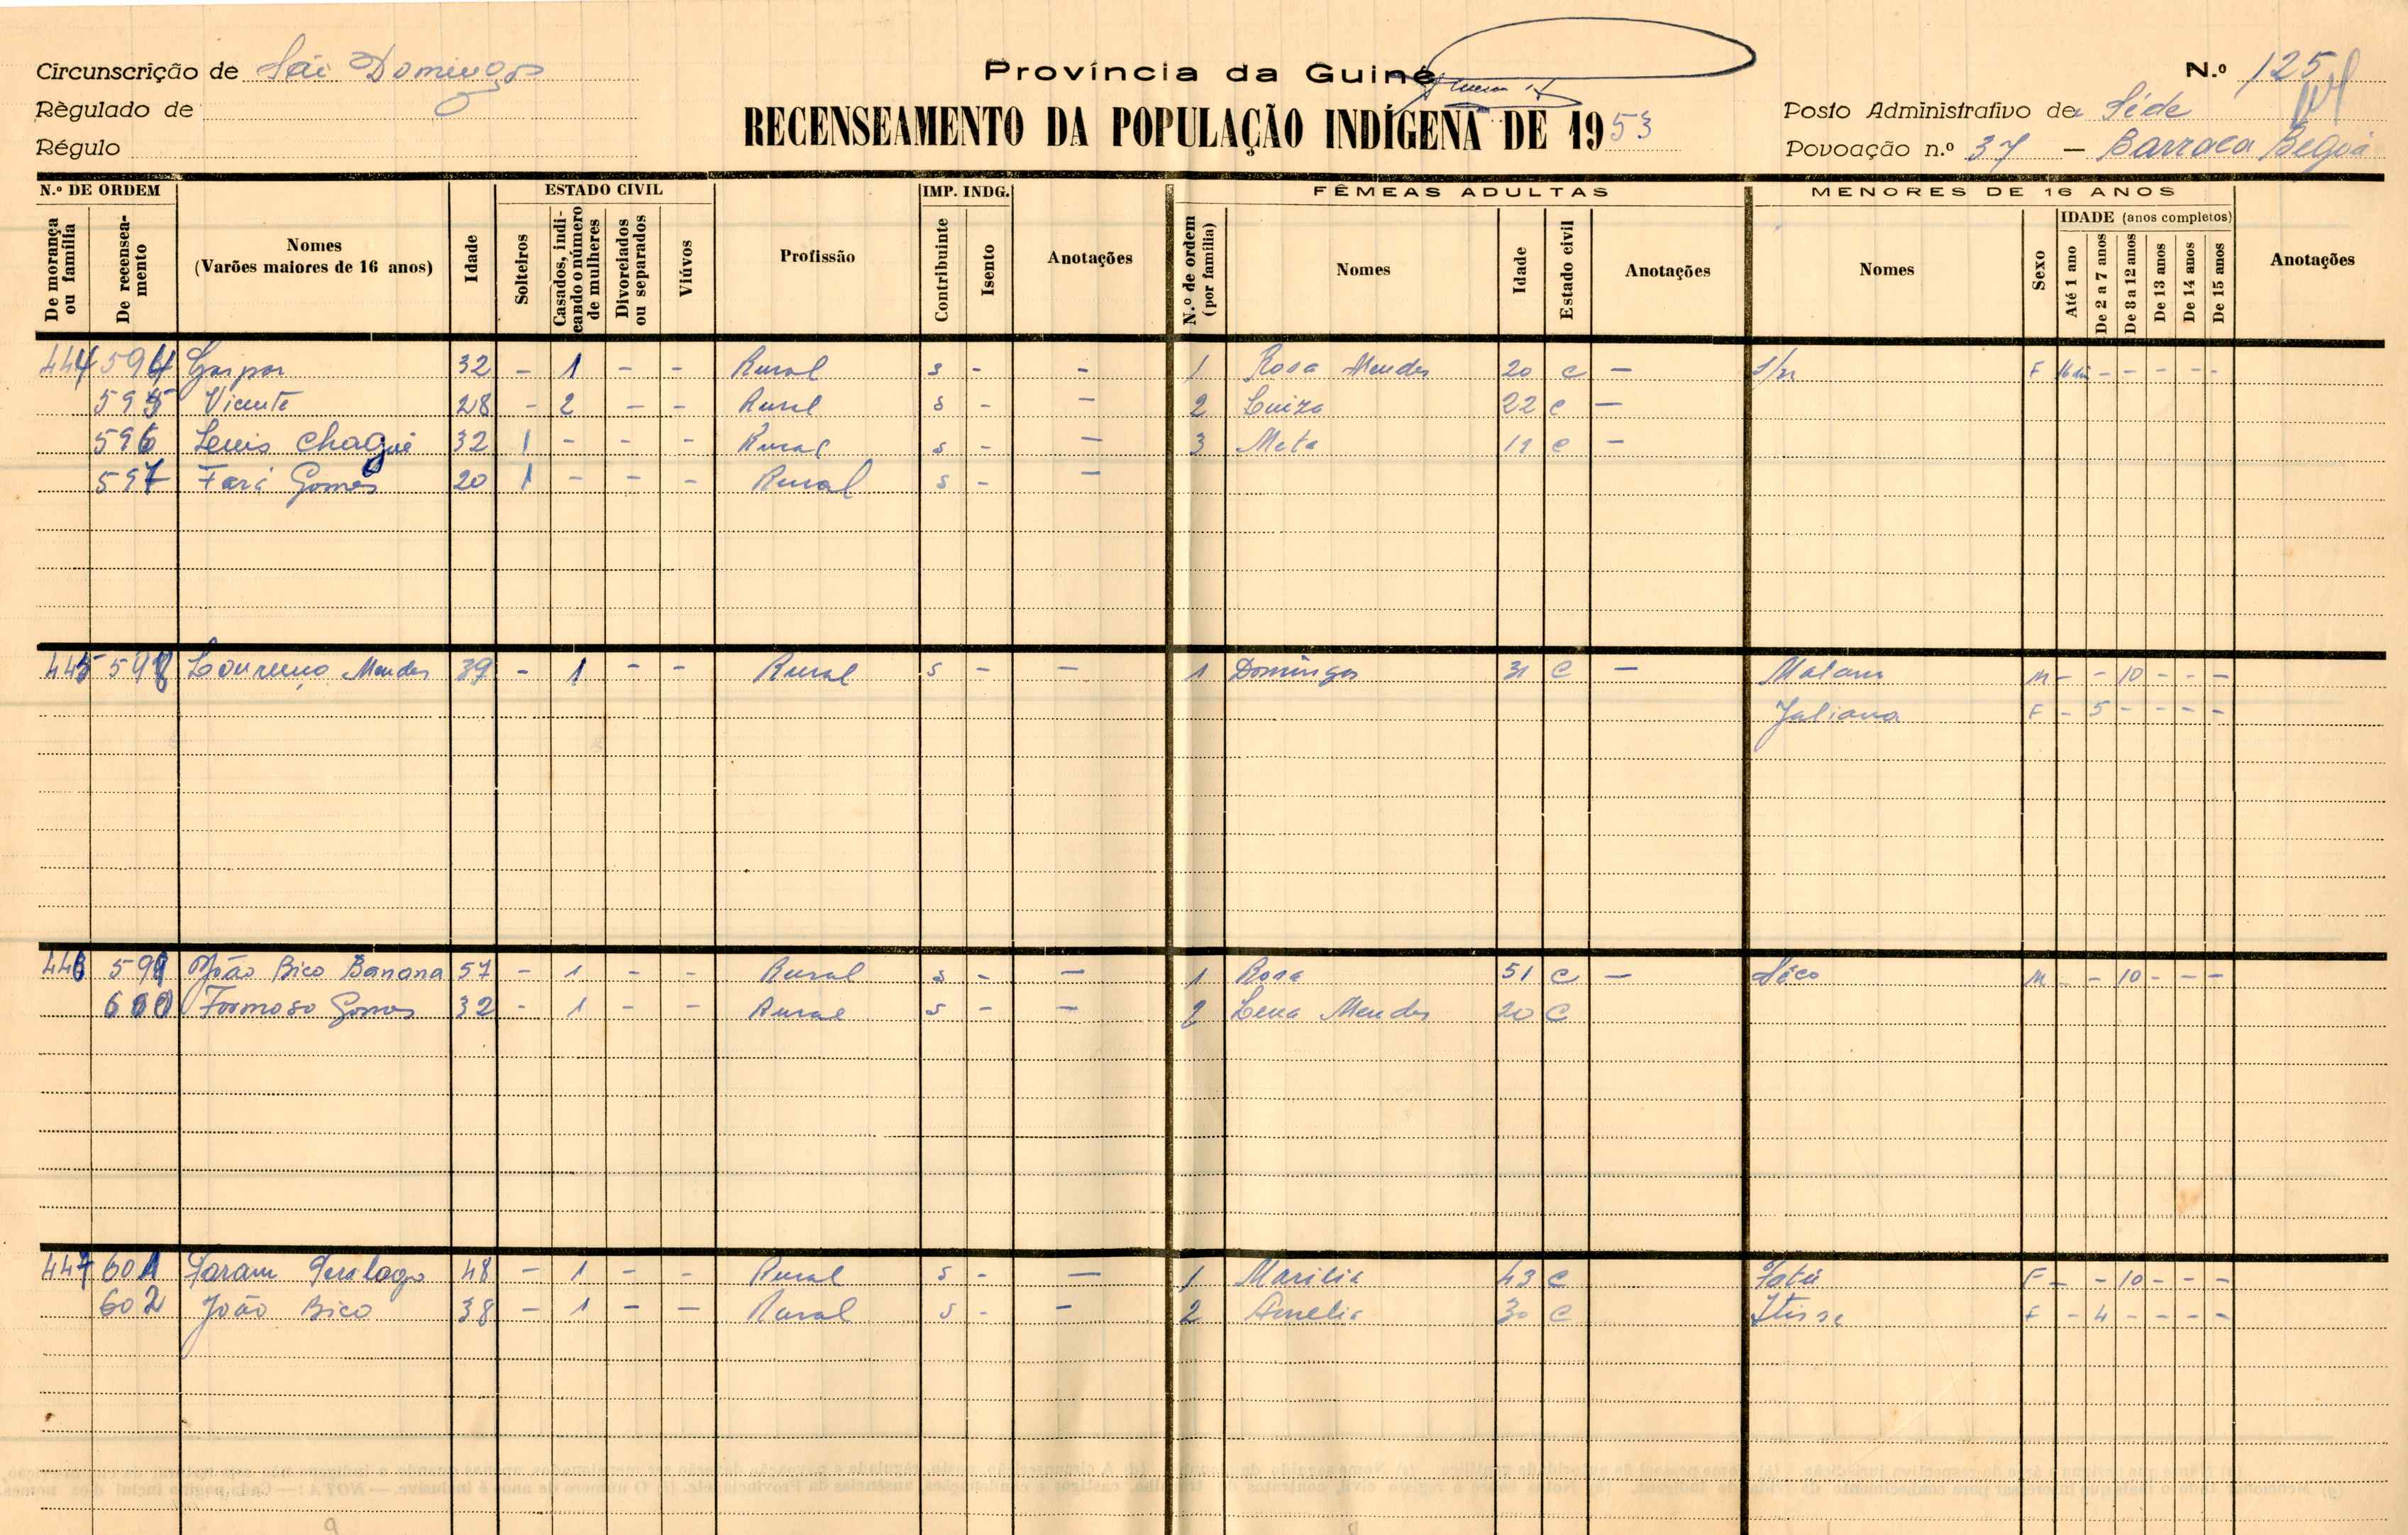 Circunscrição de São Domingos
Província da Guiné
N.º 125
Règulado de
RECENSEAMENTO DA POPULAÇÃO INDÍGENA DE 1953
Posto Administrativo de Séde
Régulo
Povoação n.º 37 — Barraca Begoá
N.º DE ORDEM
De morança ou família
De recenseamento
Nomes
(Varões maiores de 16 anos)
Idade
ESTADO CIVIL
Solteiros
Casados, indicando o número de mulheres
Divorciados ou separados
Viúvos
Profissão
IMP. INDG.
Contribuinte
Isento
Anotações
FÊMEAS ADULTAS
N.º de ordem (por família)
Nomes
Idade
Estado civil
Anotações
MENORES DE 16 ANOS
Nomes
Sexo
IDADE (anos completos)
Até 1 ano
De 2 a 7 anos
De 8 a 12 anos
De 13 anos
De 14 anos
De 15 anos
Anotações
444 594 Gaspar 32 - 1 - - Rural s - - 1 Rosa Mendes 20 c — S/n F - - - - -
595 Vicente 28 - 2 - - Rural s - — 2 Luiza 22 c —
596 Luis Chagué 32 1 - - - Rural s - — 3 Meta 19 c -
597 Fará Gomes 20 1 - - - Rural s - —
445 598 Lourenço Mendes 39 - 1 - - Rural s - — 1 Domingas 31 C — Malam M - - 10 - - -
Juliana F - 5 - - - -
446 599 João Bico Banana 57 - 1 - - Rural s - — 1 Rosa 51 C — Séco M - - 10 - - -
600 Formoso Gomes 32 - 1 - - Rural s - — 2 Lena Mendes 20 C
447 601 48 - 1 - - Rural s - — 1 Marilia 43 C Fatú F - - 10 - - -
602 João Bico 38 - 1 - - Rural s - - 2 Amelia 30 C F - 4 - - - -